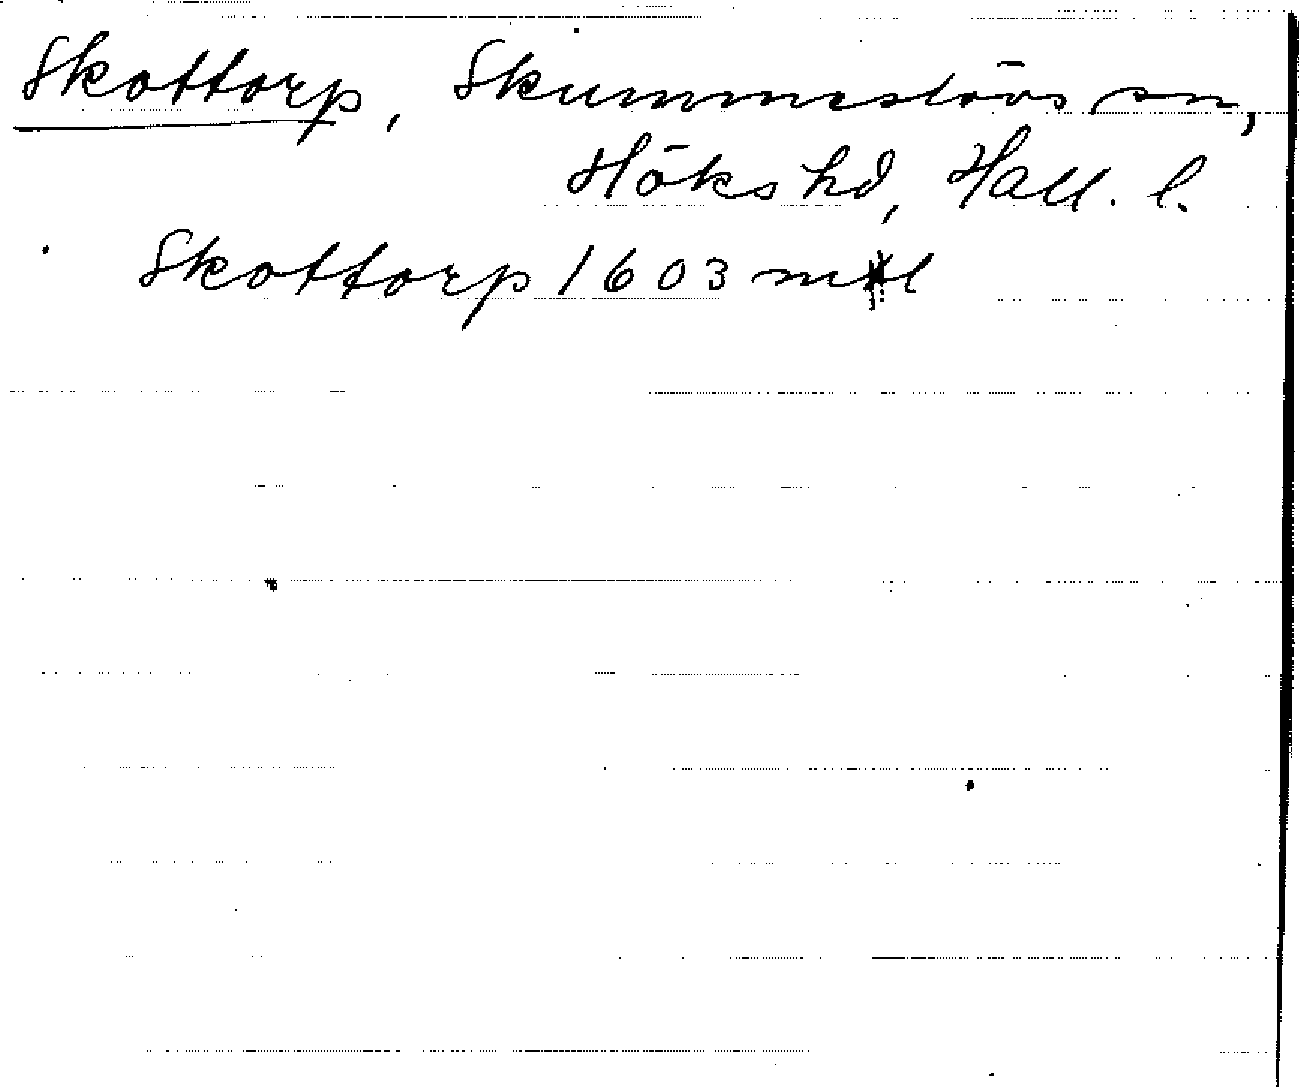 Skottorp, Skummeslövs sn,
Höks hd, Hall. l.
Skottorp 1603